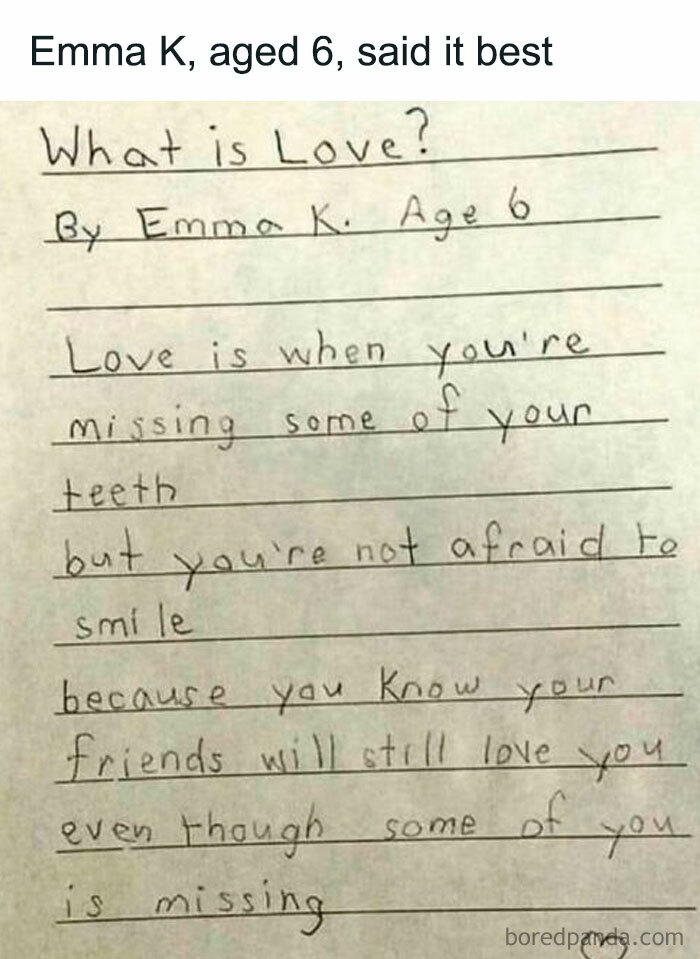 Emma K, aged 6, said it best
What is Love?
By Emma K. Age 6
Love is when you're
missing some of your
teeth
but you're not afraid to
smile
because you know your
friends will still love you
even though some of you
is missing
boredpanda.com